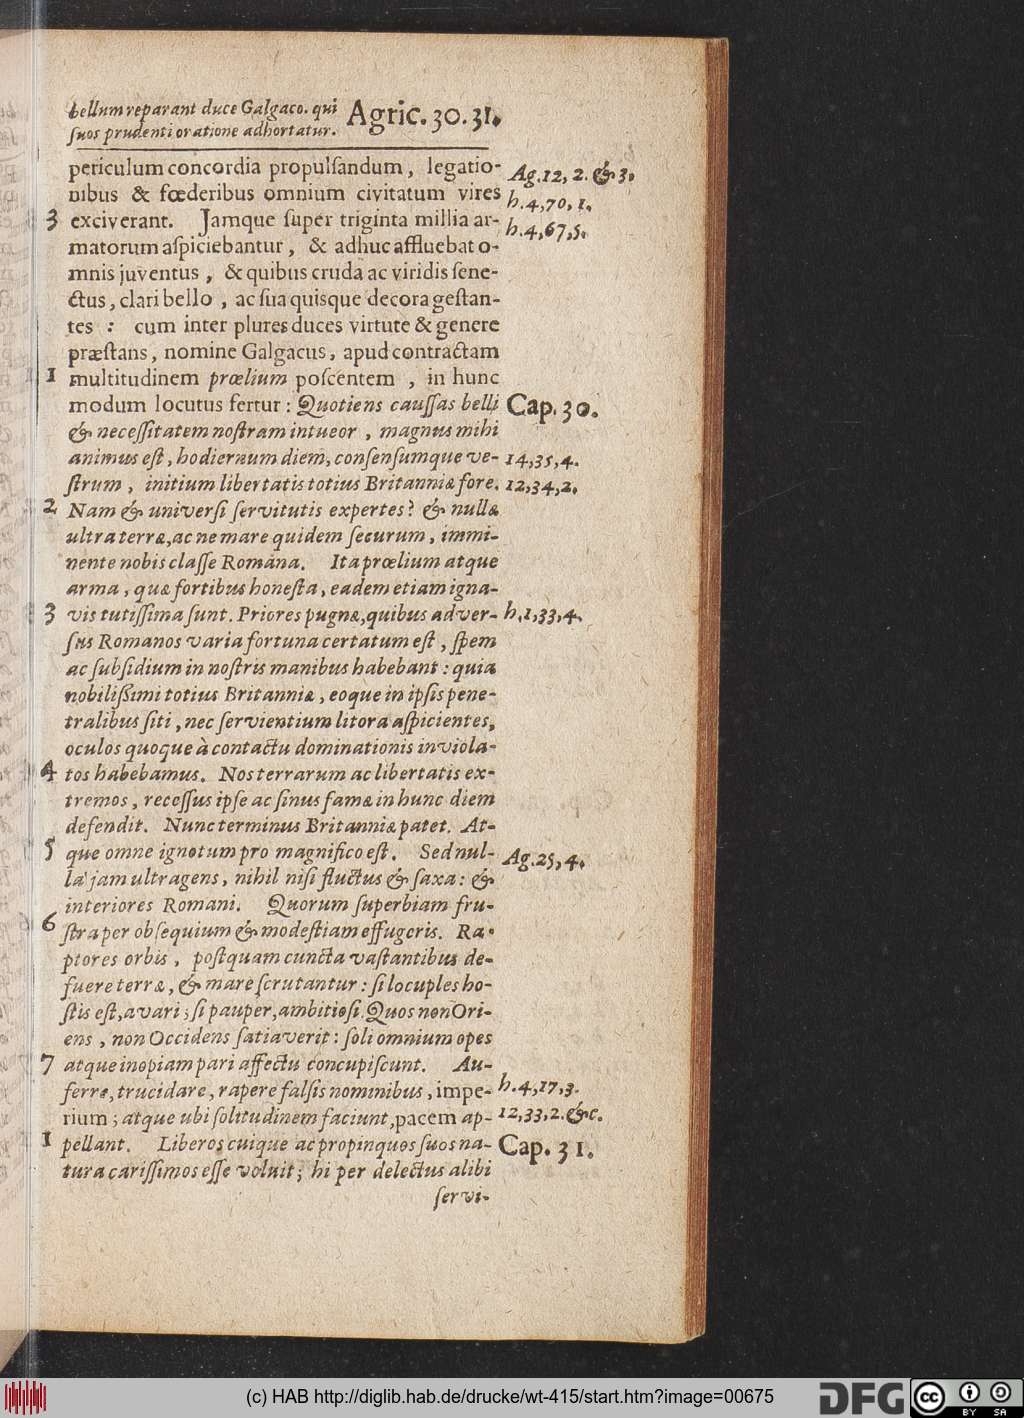 bellum reparant duce Galgaco. qui
ſuos prudenti oratione adhortatur. Agric. 30. 31.
periculum concordia propulſandum, legatio- Ag. 12, 2. & 3.
nibus & fœderibus omnium civitatum vires h. 4, 70, 1.
3 exciverant. Jamque ſuper triginta millia ar- h. 4, 67, 5.
matorum aſpiciebantur, & adhuc affluebat o-
mnis juventus, & quibus cruda ac viridis ſene-
ctus, clari bello, ac ſua quisque decora geſtan-
tes: cum inter plures duces virtute & genere
præſtans, nomine Galgacus, apud contractam
1 multitudinem prœlium poſcentem, in hunc
modum locutus fertur: Quotiens cauſſas belli Cap. 30.
& neceſſitatem noſtram intueor, magnus mihi
animus eſt, hodiernum diem, conſenſumque ve- 14, 35, 4.
ſtrum, initium libertatis totius Britanniæ fore. 12, 34, 2.
2 Nam & univerſi ſervitutis expertes? & nullæ
ultra terræ, ac ne mare quidem ſecurum, immi-
nente nobis claſſe Romàna. Ita prœlium atque
arma, quæ fortibus honeſta, eadem etiam igna-
3 vis tutiſſima ſunt. Priores pugnæ, quibus adver- h. 1, 33, 4.
ſus Romanos varia fortuna certatum eſt, ſpem
ac ſubſidium in noſtris manibus habebant: quia
nobilißimi totius Britanniæ, eoque in ipſis pene-
tralibus ſiti, nec ſervientium litora aſpicientes,
oculos quoque à contactu dominationis inviola-
4 tos habebamus. Nos terrarum ac libertatis ex-
tremos, receſſus ipſe ac ſinus famæ in hunc diem
defendit. Nunc terminus Britanniæ patet. At-
5 que omne ignotum pro magnifico eſt. Sed nul- Ag. 25, 4.
la jam ultra gens, nihil niſi fluctus & ſaxa: &
interiores Romani. Quorum ſuperbiam fru-
6 ſtra per obſequium & modeſtiam effugeris. Ra-
ptores orbis, poſtquam cuncta vaſtantibus de-
fuere terræ, & mare ſcrutantur: ſi locuples ho-
ſtis eſt, avari; ſi pauper, ambitioſi. Quos non Ori-
ens, non Occidens ſatiaverit: ſoli omnium opes
7 atque inopiam pari affectu concupiſcunt. Au-
ferre, trucidare, rapere falſis nominibus, impe- h. 4, 17, 3.
rium; atque ubi ſolitudinem faciunt, pacem ap- 12, 33, 2. &c.
1 pellant. Liberos cuique ac propinquos ſuos na- Cap. 31.
tura cariſſimos eſſe voluit; hi per delectus alibi
ſervi-
(c) HAB http://diglib.hab.de/drucke/wt-415/start.htm?image=00675
DFG
cc BY SA